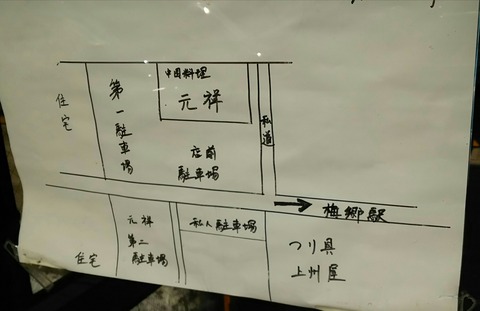 中国料理
元祥
住宅
第一駐車場
店前
駐車場
私道
梅郷駅
元祥
第二
駐車場
私人駐車場
住宅
つり具
上州屋